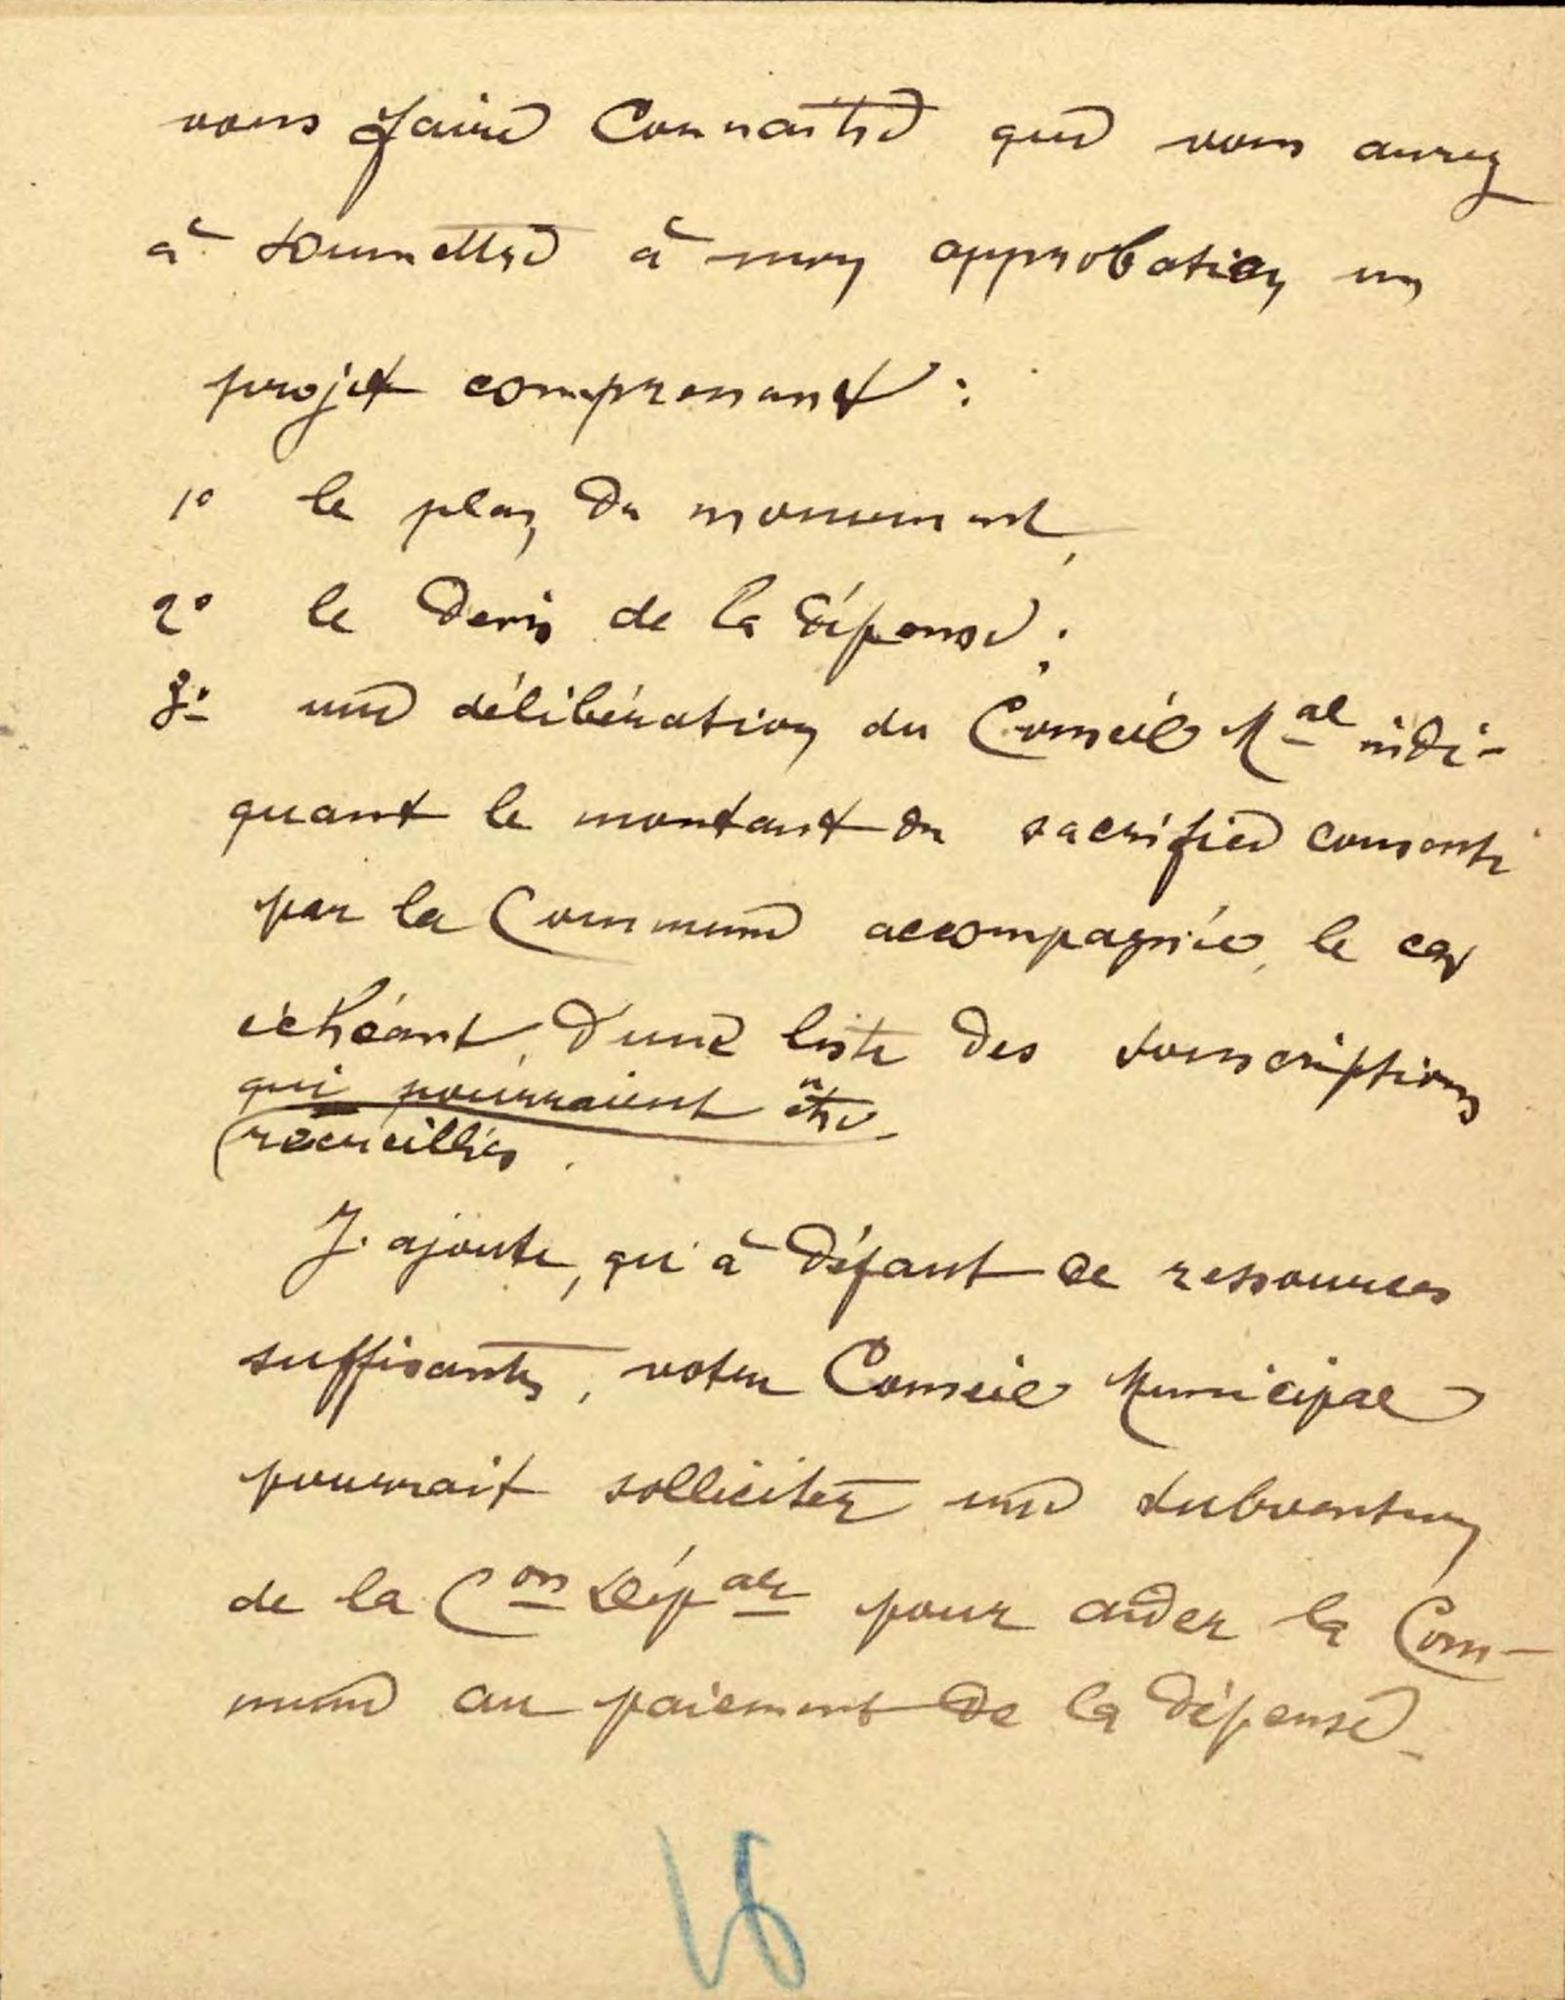 vous faire Connaître que vous aurez
à soumettre à mon approbation un
projet comprenant :
1° le plan du monument,
2° le devis de la dépense ;
3° une délibération du Conseil Mal indi-
quant le montant du sacrifice consenti
par la Commune accompagnée, le cas
échéant, d'une liste des souscriptions
qui pourraient être
recueillies.
J'ajoute, qu'à défaut de ressources
suffisantes, votre Conseil Municipal
pourrait solliciter une subvention
de la Con Dépale pour aider la Com-
mune au paiement de la dépense.